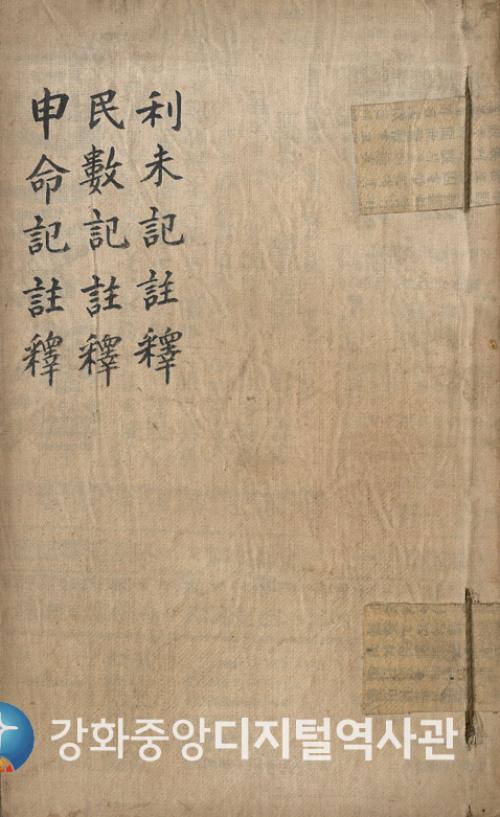 利未記註釋
民數記註釋
申命記註釋
강화중앙디지털역사관